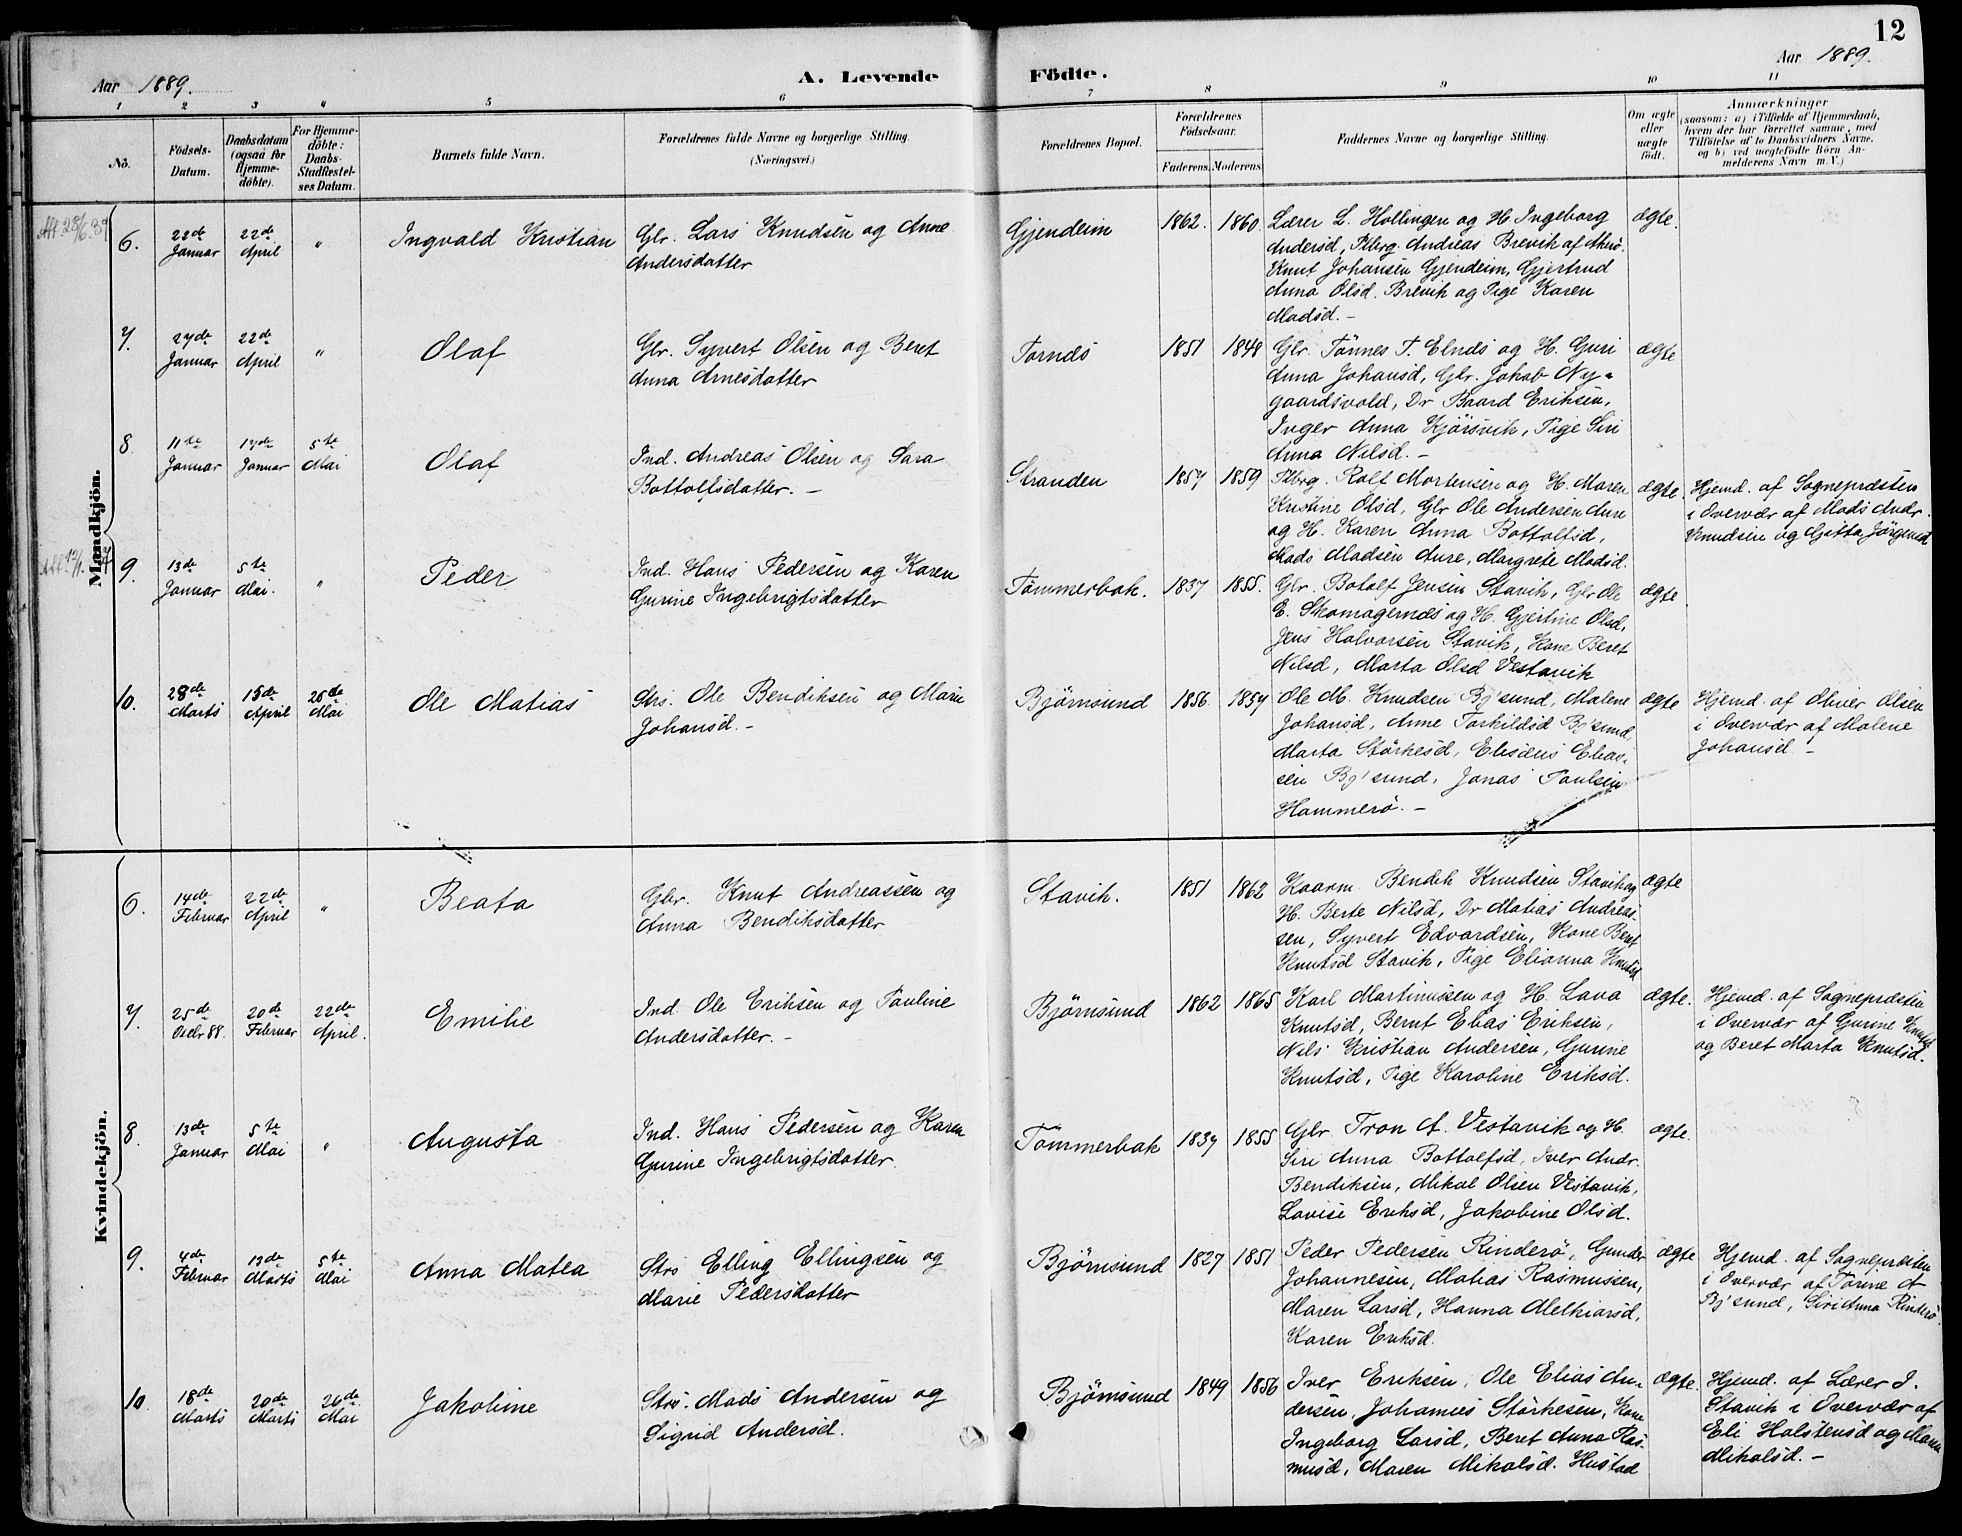 12
Aar 1889.
A. Levende Födte.
Aar 1889.
1 2 3 4 5 6 7 8 9 10 11
No.
Födsels-
Datum.
Daabsdatum
(ogsaa för
Hjemme-
döbte).
For Hjemme-
döbte:
Daabs-
Stadfæstel-
ses Datum.
Barnets fulde Navn.
Forældrenes fulde Navne og borgerlige Stilling
(Næringsvei.)
Forældrenes Bopæl.
Forældrenes
Födselsaar.
Faderens. Moderens.
Faddernes Navne og borgerlige Stilling.
Om ægte
eller
uægte
födt.
Anmærkninger
(saasom: a) i Tilfælde af Hjemmedaab,
hvem der har forrettet samme, med
Tilföielse af to Daabsvidners Navne,
og b) ved uægtefödte Börn An-
melderens Navn m. V.)
Mandkjön.
6.
22de
Januar
22de
April
"
Ingvald Kristian
Glr. Lars Knudsen og Anne
Andersdatter
Gjendeim
1862. 1860
Lærer L. Hollingen og H Ingeborg
Andersd, Plbrg. Andreas Brevik af Akerö.
Knut Johansen Gjendeim, Gjertrud
Anna Olsd. Brevik og Pige Karen
Madsd. -
ægte.
7.
27de
Januar
22de
April
"
Olaf
Glr. Syvert Olsen og Beret
Anna Arnesdatter
Tornes
1851 1848
Glr. Tönnes T. Elnes og H. Guri
Anna Johansd, Glr. Jakob Ny-
gaardsvold, Dr Baard Eriksen,
Inger Anna Kjörsvik, Pige Siri
Anna Nilsd. -
ægte
8
11te
Januar
17de
Januar
5te
Mai
Olaf
Ind. Andreas Olsen og Sara
Bottolfsdatter. -
Stranden
1857 1859
Plbrg. Rolf Mortensen og H. Maren
Kristine Olsd, Glr Ole Andersen Aure
og H. Karen Anna Bottolfsd,
Mads Madsen Aure, Margrete Madsd.
ægte.
Hjemd. af Sognepræsten
i Overvær af Mads Andr.
Knudsen og Gitta Jörgensd
9.
13de
Januar
5te
Mai.
"
Peder
Ind. Hans Pedersen og Karen
Gurine Ingebrigtsdatter
Tömmerbak.
1837 1855.
Glr. Botolf Jensen Stavik, Glr Ole
E. Skomagernes og H. Gjertine Olsd,
Jens Halvorsen Stavik, Kone Beret
Nilsd, Marta Olsd Vestavik
ægte
10.
28de
Marts
15de
April
26de
Mai
Ole Matias
Strs. Ole Bendiksen og Marie
Johansd. -
Björnsund
1856. 1857
Ole M. Knudsen Bj'sund, Malene
Johansd, Anne Torkildsd Bj'sund,
Marta Störkesd, Elisæus Elias-
sen Bj'sund, Jonas Paulsen
Hammerö. -
ægte
Hjemd. af Oliver Olsen
i Overvær af Malene
Johansd. -
Kvindekjön.
6.
14de
Februar
22de
April
"
Beata
Gbr. Knut Andreassen og
Anna Bendiksdatter
Stavik.
1851 1862
Kaarm. Bendik Knudsen Stavik og
H. Berte Nilsd, Dr Matias Andreas-
sen, Syvert Edvardsen, Kone Beret
Knutsd Stavik, Pige Elianna Knutsd
ægte
7.
25de
Decbr 88.
20de
Februar
22de
April.
Emilie
Ind Ole Eriksen og Pauline
Andersdatter. -
Björnsund
1862 1865
Karl Martinussen og H. Lava
Knutsd, Bernt Elias Eriksen,
Nils Kristian Andersen, Gurine
Knutsd, Pige Karoline Eriksd.
ægte.
Hjemd. af Sognepræsten
i Overvær af Gurine Knutsd
og Beret Marta Knutsd.
8.
13de
Januar
5te
Mai
"
Augusta
Ind. Hans Pedersen og Karen
Gurine Ingebrigtsdatter.
Tömmerbak
1837 1855
Glr. Tron A. Vestavik og H.
Siri Anna Bottolfsd, Iver Andr.
Bendiksen, Mikal Olsen Vestavik,
Lovise Eriksd, Jakobine Olsd.
ægte.
9.
4de
Februar
13de
Marts
5te
Mai
Anna Matea
Strs Elling Ellingsen og
Marie Pedersdatter
Björnsund
1827 1851
Peder Pedersen Rinderö, Gunder
Johannesen, Matias Rasmussen,
Maren Larsd, Hanna Melkiarsd,
Karen Eriksd.
ægte
Hjemd. af Sognepræsten
i Overvær af Torine A
Bj'sund, Siri Anna Rinderö.
10.
18de
Marts
20de
Marts
26de
Mai
Jakobine
Strs. Mads Andersen og
Sigrid Andersd.
Björnsund
1849 1856
Iver Eriksen, Ole Elias An-
dersen, Johannes Störkesen, Kone
Ingeborg Larsd, Beret Anna Ras-
musd, Maren Mikalsd. Hustad
ægte.
Hjemd. af Lærer J.
Stavik i Overvær af
Eli Halstensd og Maren
Mikalsd. -